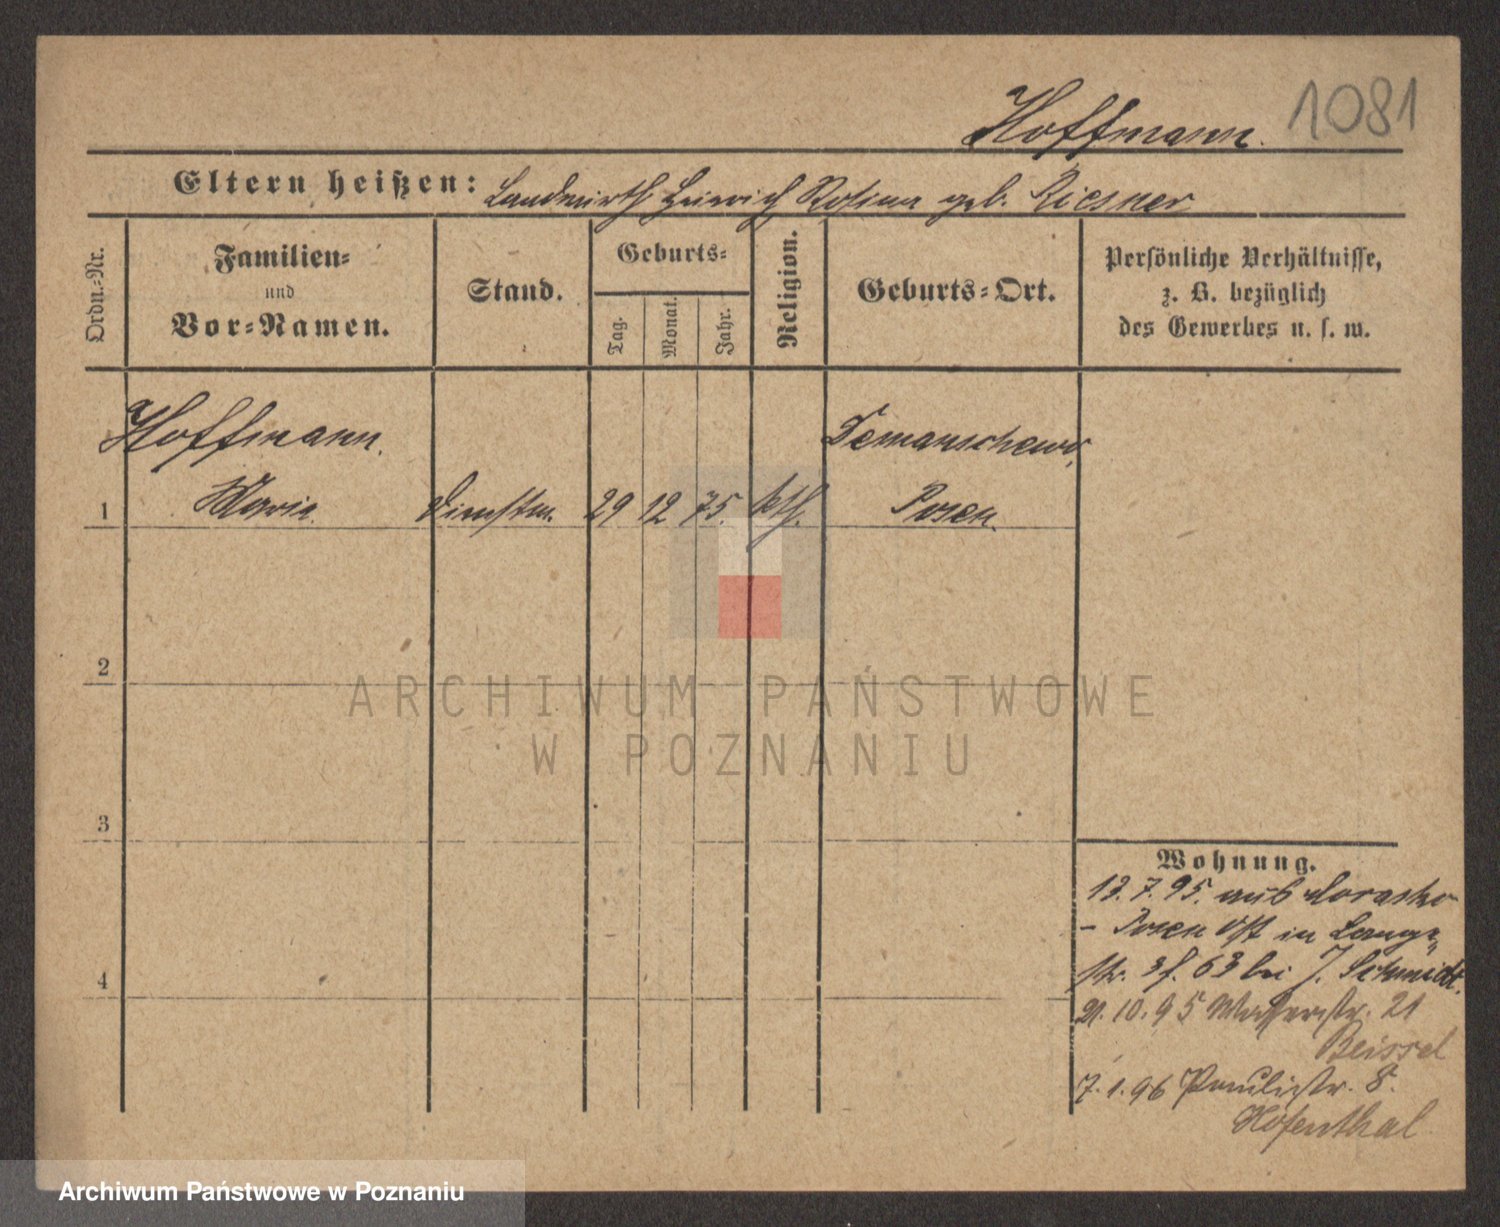 1081
Hoffmann.
Eltern heißen: Landwirth Heinrich Rosina geb. Riesner
Ordn.-Nr.
Familien-
und
Vor-Namen.
Stand.
Geburts-
Tag.
Monat.
Jahr.
Religion.
Geburts-Ort.
Persönliche Verhältnisse,
z. B. bezüglich
des Gewerbes u. s. w.
Hoffmann.
Maria
1
Dienstm.
29 12 75.
kth.
Jemanschewo,
Posen.
2
ARCHIWUM PAŃSTWOWE
W POZNANIU
3
4
Wohnung.
13.7.95. aus Morasko
- Posen Ost in Lange
str. 3 f. 63 bei J. Schmidt.
21.10.95 Wasserstr. 21
Beissel
7.1.96 Paulistr. 8.
Hosenthal
Archiwum Państwowe w Poznaniu